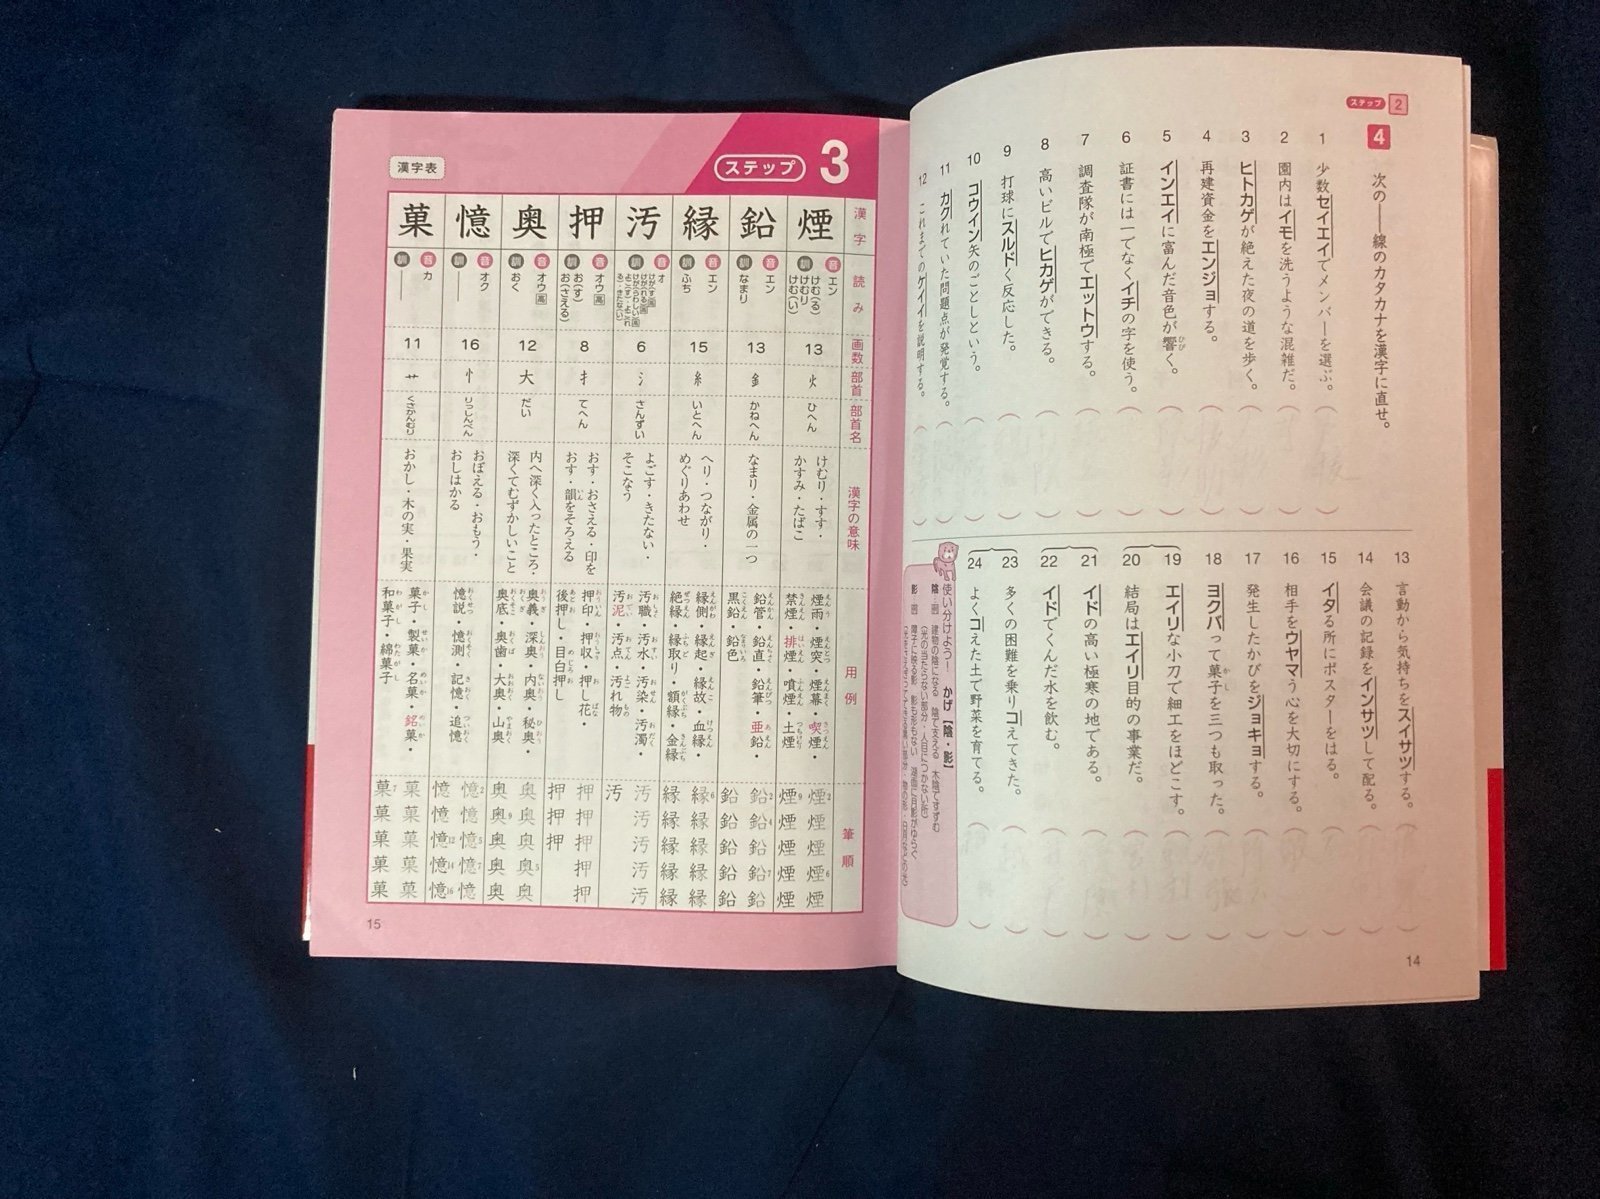 ステップ 2
4 次の――線のカタカナを漢字に直せ。
1 少数セイエイでメンバーを選ぶ。
2 園内はイモを洗うような混雑だ。
3 ヒトカゲが絶えた夜の道を歩く。
4 再建資金をエンジョする。
5 インエイに富んだ音色が響く。
ひび
6 証書には一でなくイチの字を使う。
7 調査隊が南極でエットウする。
8 高いビルでヒカゲができる。
9 打球にスルドく反応した。
10 コウイン矢のごとしという。
11 カクれていた問題点が発覚する。
12 これまでのケイイを説明する。
13 言動から気持ちをスイサツする。
14 会議の記録をインサツして配る。
15 イタる所にポスターをはる。
16 相手をウヤマう心を大切にする。
17 発生したかびをジョキョする。
18 ヨクバって菓子を三つも取った。
かし
19 エイリな小刀で細工をほどこす。
20 結局はエイリ目的の事業だ。
21 イドの高い極寒の地である。
22 イドでくんだ水を飲む。
23 多くの困難を乗りコえてきた。
24 よくコえた土で野菜を育てる。
使い分けよう! かげ【陰・影】
陰…例 建物の陰になる 陰で支える 木陰ですずむ
(光の当たらない部分・人目につかない所)
影…例 障子に映る影 影も形もない 湖面に月影がゆらぐ
14
ステップ 3
漢字表
漢字 煙 鉛 縁 汚 押 奥 憶 菓
読み
音 エン 訓 けむ(る) けむり けむ(い)
音 エン 訓 なまり
音 エン 訓 ふち
音 オ 訓 けが(す)高 けが(れる)高 けが(らわしい)高 よご(す)・よご(れる)・きたな(い)
音 オウ高 訓 お(す) お(さえる)
音 オウ高 訓 おく
音 オク 訓 ――
音 カ 訓 ――
画数 13 13 15 6 8 12 16 11
部首 火 釒 糸 氵 扌 大 忄 艹
部首名 ひへん かねへん いとへん さんずい てへん だい りっしんべん くさかんむり
漢字の意味
けむり・すす・かすみ・たばこ
なまり・金属の一つ
へり・つながり・めぐりあわせ
よごす・きたない・そこなう
おす・おさえる・印をおす・韻をそろえる
いん
内へ深く入ったところ・深くてむずかしいこと
おぼえる・おもう・おしはかる
おかし・木の実・果実
用例
煙雨・煙突・煙幕・喫煙・禁煙・排煙・噴煙・土煙
鉛管・鉛直・鉛筆・亜鉛・黒鉛・鉛色
縁側・縁起・縁故・血縁・絶縁・縁取り・額縁・金縁
汚職・汚水・汚染・汚濁・汚泥・汚点・汚れ物
押印・押収・押し花・後押し・目白押し
奥義・深奥・内奥・秘奥・奥底・奥歯・大奥・山奥
憶説・憶測・記憶・追憶
菓子・製菓・名菓・銘菓・和菓子・綿菓子
筆順
煙 鉛 縁 汚 押 奥 憶 菓
15